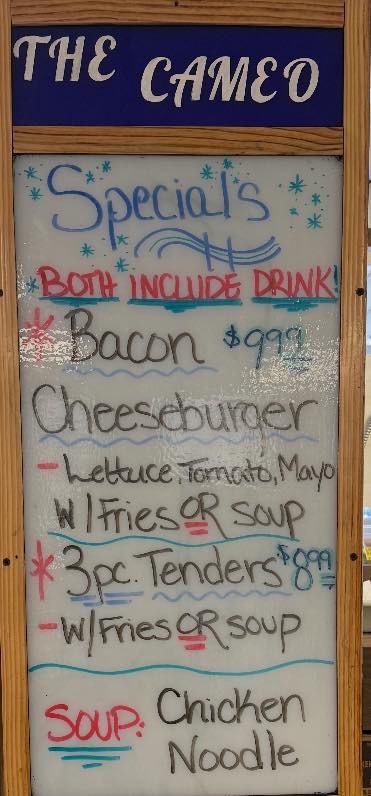 THE CAMEO
Specials
BOTH INCLUDE DRINK!
* Bacon $9.99
Cheeseburger
- Lettuce, Tomato, Mayo
W/Fries OR soup
* 3pc. Tenders $8.99
- W/Fries OR soup
SOUP: Chicken
Noodle